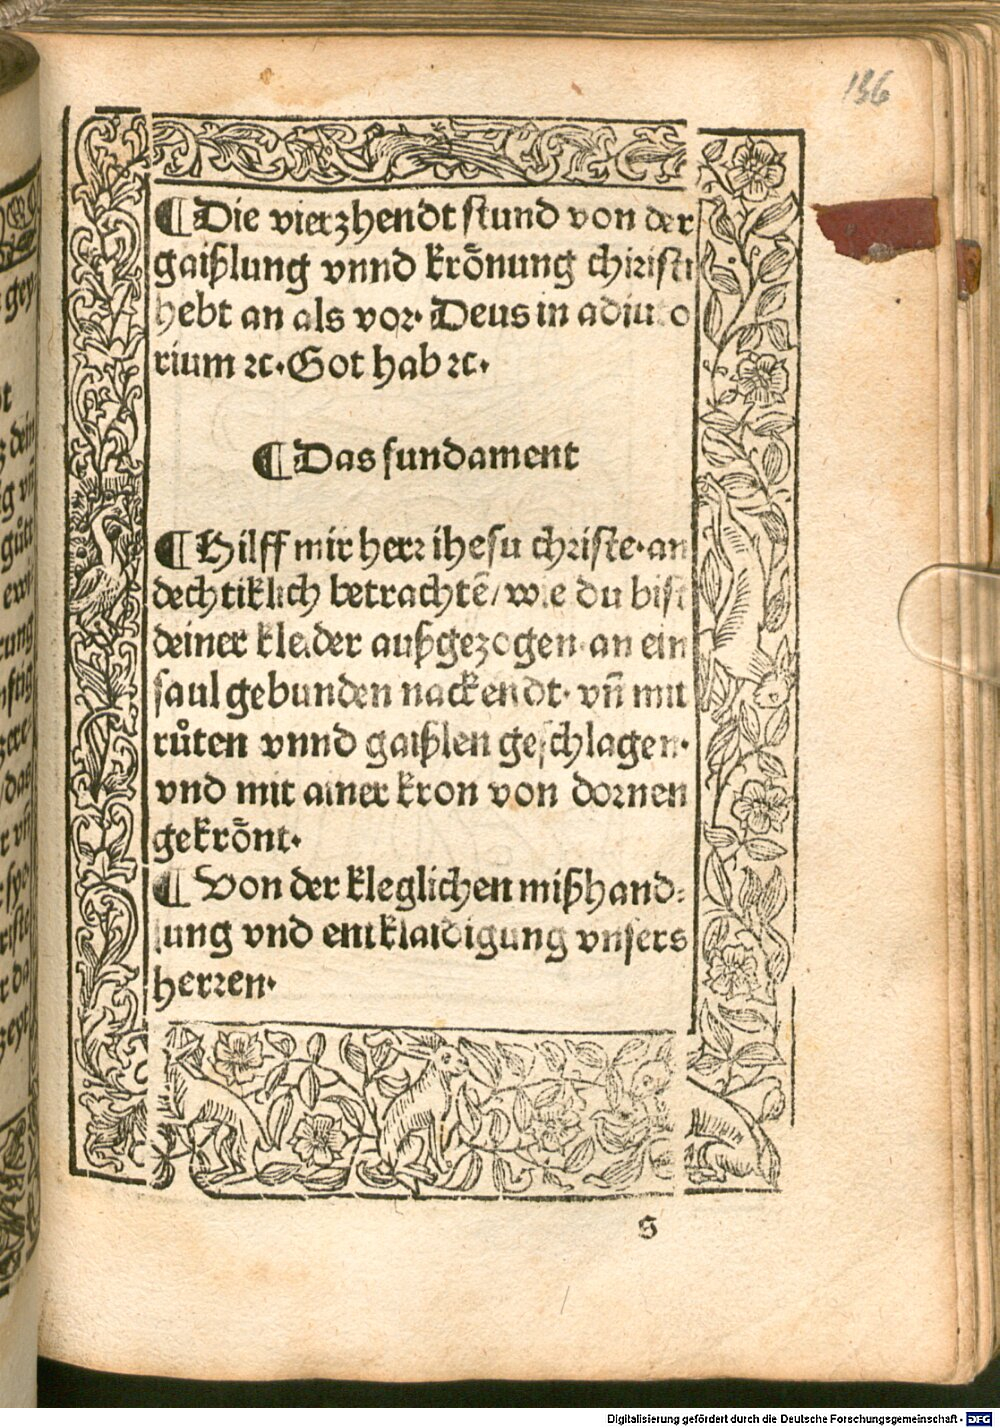 136
¶ Die vierzhendt stund von der
gaißlung vnnd krõnung christi
hebt an als vor. Deus in adiuto
rium ꝛc. Got hab ꝛc.
¶ Das fundament
¶ Hilff mir herr ihesu christe. an
dechtiklich betrachtẽ / wie du bist
deiner kleider außgezogen. an ein
saul gebunden nackendt. vñ mit
růten vnnd gaißlen geschlagen.
vnd mit ainer kron von dornen
gekrõnt.
¶ Von der kleglichen mißhand⸗
lung vnd entklaidigung vnsers
herren.
S
Digitalisierung gefördert durch die Deutsche Forschungsgemeinschaft - DFG